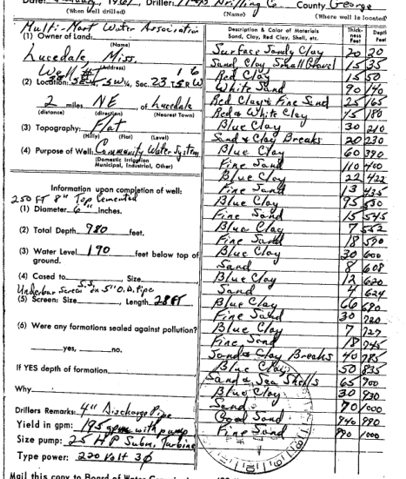 (When well drilled) (Name) (Where well is located)
Multi-Mart Water Association
(1) Owner of Land:
(Name)
Lucedale, Miss.
Well #1
(2) Location: SE ¼ SW ¼, Sec. 23
2 miles NE of Lucedale
(distance) (direction) (Nearest Town)
(3) Topography: Flat
(Hilly) (Flat) (Level)
(4) Purpose of Well: Community Water System
(Domestic Irrigation
Municipal, Industrial, Other)
Information upon completion of well:
250 FT 8" Top Cemented
(1) Diameter 6" inches.
(2) Total Depth 980 feet.
(3) Water Level 190 feet below top of
ground.
(4) Cased to Size
(5) Screen: Size Length 28 FT
(6) Were any formations sealed against pollution?
yes, no.
If YES depth of formation
Why
Drillers Remarks: 4" Discharge Pipe
Yield in gpm: 195 gpm with pump
Size pump: 25 HP Subm. Turbine
Type power: 220 Volt 3Ø
Description & Color of Materials
Sand, Clay, Red Clay, Shell, etc.
Thickness Feet
Depth Feet
Surface Sandy Clay 20 20
Sand Clay Small Gravel 15 35
Red Clay 15 50
White Sand 90 140
Red Clay & Fine Sand 25 165
Red & White Clay 15 180
Blue Clay 30 210
Sand & Clay Breaks 20 230
Blue Clay 60 290
Fine Sand 110 400
Blue Clay 22 422
Fine Sand 13 435
Blue Clay 95 530
Fine Sand 15 545
Blue Clay 7 552
Fine Sand 18 570
Blue Clay 30 600
Sand 8 608
Blue Clay 12 620
Sand 4 624
Blue Clay 66 690
Fine Sand 30 720
Blue Clay 7 727
Fine Sand 18 745
Sand & Clay Breaks 40 785
Blue Clay 50 835
Sand & Sea Shells 65
Blue Clay 30
Sand 70 1000
Good Sand
Fine Sand 1000